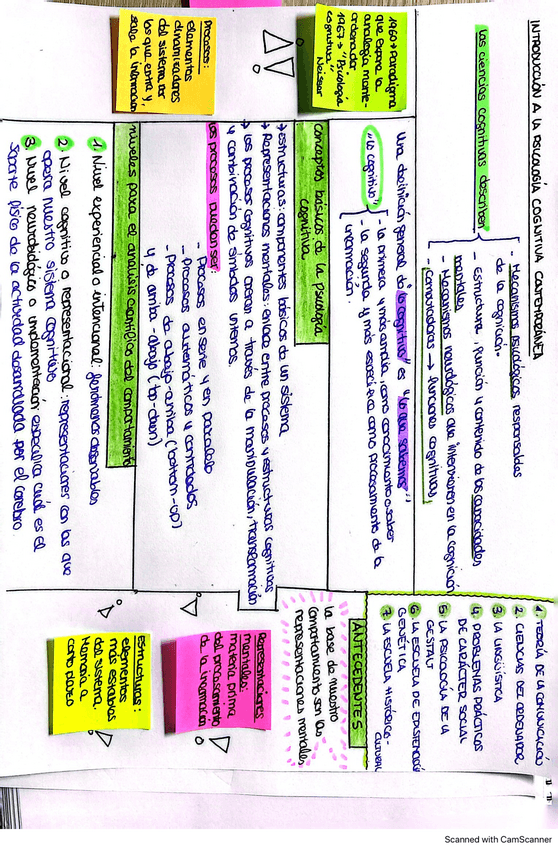 INTRODUCCIÓN A LA PSICOLOGÍA COGNITIVA CONTEMPORÁNEA
Las ciencias cognitivas describen
- Mecanismos psicológicos responsables
de la cognición.
- Estructura, función y contenido de las capacidades
mentales
- Mecanismos neurológicos que intervienen en la cognición
- Computadoras → funciones cognitivas
Una definición general de "lo cognitivo" es "lo que sabemos"
"lo cognitivo"
- la primera y más amplia, como conocimiento o saber
- la segunda y más específica como procesamiento de la
información.
1960 → Paradigma
que expone la
analogía mente-
ordenador
1967 → "Psicología
cognitiva"
Neisser
conceptos básicos de la psicología
cognitiva
→ estructuras: componentes básicos de un sistema
→ Representaciones mentales: enlace entre procesos y estructuras cognitivas
→ los procesos cognitivos operan a través de la manipulación, transformación
y combinación de símbolos internos.
los procesos pueden ser:
- Procesos en serie y en paralelo
- Procesos automáticos y controlados
- Procesos de abajo-arriba (bottom-up)
y de arriba-abajo (top-down)
procesos:
elementos
dinamizadores
del sistema por
los que entra y
sale la información
niveles para el análisis científico del comportamiento
1 Nivel experiencial o intencional: fenómenos observables
2 Nivel cognitivo o representacional: representaciones con las que
opera nuestro sistema cognitivo
3 Nivel neurobiológico o implementación: especifica cuál es el
soporte físico de la actividad desarrollada por el cerebro
ANTECEDENTES
1 TEORÍA DE LA COMUNICACIÓN
2 CIENCIAS DEL ORDENADOR
3 LA LINGÜÍSTICA
4 PROBLEMAS PRÁCTICOS
DE CARÁCTER SOCIAL
5 LA PSICOLOGÍA DE LA
GESTALT
6 LA ESCUELA DE EPISTEMOLOGÍA
GENÉTICA
7 LA ESCUELA HISTÓRICO-
CULTURAL
la base de nuestro
comportamiento son las
representaciones mentales
Representaciones
mentales:
materia prima
del procesamiento
de la información
estructuras:
elementos
más estables
del sistema
Memoria a
corto plazo
Scanned with CamScanner